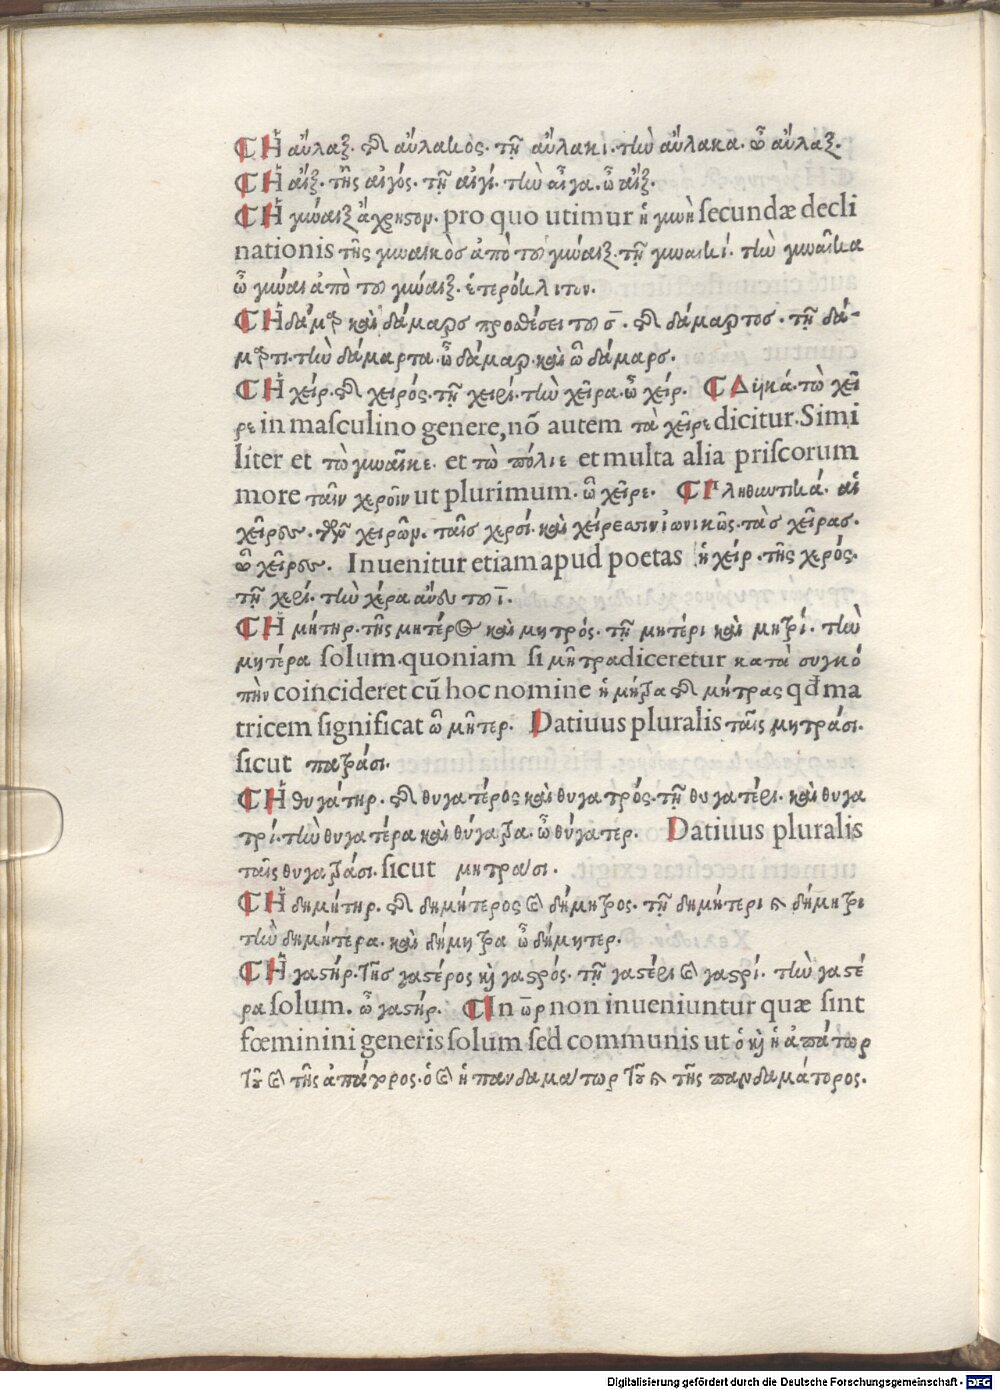 ¶ Ἡ αὖλαξ. τῆς αὔλακος. τῇ αὔλακι. τὴν αὔλακα. ὦ αὖλαξ.
¶ Ἡ αἴξ. τῆς αἰγός. τῇ αἰγί. τὴν αἶγα. ὦ αἴξ.
¶ Ἡ γύναιξ ἄχρηστον. pro quo utimur ἡ γυνὴ ſecundæ decli
nationis τῆς γυναικὸσ ἀπὸ τοῦ γύναιξ. τῇ γυναικί. τὴν γυναῖκα
ὦ γύναι ἀπὸ τοῦ γύναιξ. ἑτερόκλιτον.
¶ Ἡ δάμαρ καὶ δάμαρσ προσθέσει τοῦ σ̅. τῆς δάμαρτοσ. τῇ δά-
μαρτι. τὴν δάμαρτα. ὦ δάμαρ. καὶ ὦ δάμαρσ.
¶ Ἡ χείρ. τῆς χειρός. τῇ χειρί. τὴν χεῖρα. ὦ χείρ. ¶ Δϋικά. τὼ χεῖ
ρε in maſculino genere, nō autem τὰ χεῖρε dicitur. Simi
liter et τὼ γυναῖκε. et τὼ πόλιε et multa alia priſcorum
more ταῖν χεροῖν ut plurimum. ὦ χεῖρε. ¶ Πληθυντικά. αἱ
χεῖρες. τῶν χειρῶν. ταῖσ χερσί. καὶ χείρεσιν ἰωνικῶς. τὰσ χεῖρασ.
ὦ χεῖρες. Inuenitur etiam apud poetas ἡ χείρ. τῆς χερός.
τῇ χερί. τὴν χέρα ἄνευ τοῦ ῑ.
¶ Ἡ μήτηρ. τῆς μητέρος καὶ μητρός. τῇ μητέρι καὶ μητρί. τὴν
μητέρα ſolum. quoniam ſi μῆτρα diceretur κατὰ συγκό
πὴν coincideret cū hoc nomine ἡ μήτρα τῆς μήτρας qđ ma
tricem ſignificat ὦ μῆτερ. Datiuus pluralis ταῖς μητράσι.
ſicut πατράσι.
¶ Ἡ θυγάτηρ. τῆς θυγατέρος καὶ θυγατρός. τῇ θυγατέρι. καὶ θυγα
τρί. τὴν θυγατέρα καὶ θύγατρα. ὦ θύγατερ. Datiuus pluralis
ταῖς θυγατράσι. ſicut μητράσι.
¶ Ἡ δημήτηρ. τῆς δημήτερος καὶ δήμητρος. τῇ δημήτερι καὶ δήμητρι
τὴν δημήτερα. καὶ δήμητρα ὦ δήμητερ.
¶ Ἡ γαστήρ. τῆσ γαστέρος καὶ γαστρός. τῇ γαστέρι καὶ γαστρί. τὴν γαστέ
ρα ſolum. ὦ γαστήρ. ¶ In ω̅ρ non inueniuntur quæ ſint
fœminini generis ſolum ſed communis ut ὁ καὶ ἡ ἀπάτωρ
τοῦ καὶ τῆς ἀπάτορος. ὁ καὶ ἡ πανδαμάτωρ τοῦ καὶ τῆς πανδαμάτορος.
Digitalisierung gefördert durch die Deutsche Forschungsgemeinschaft - DFG